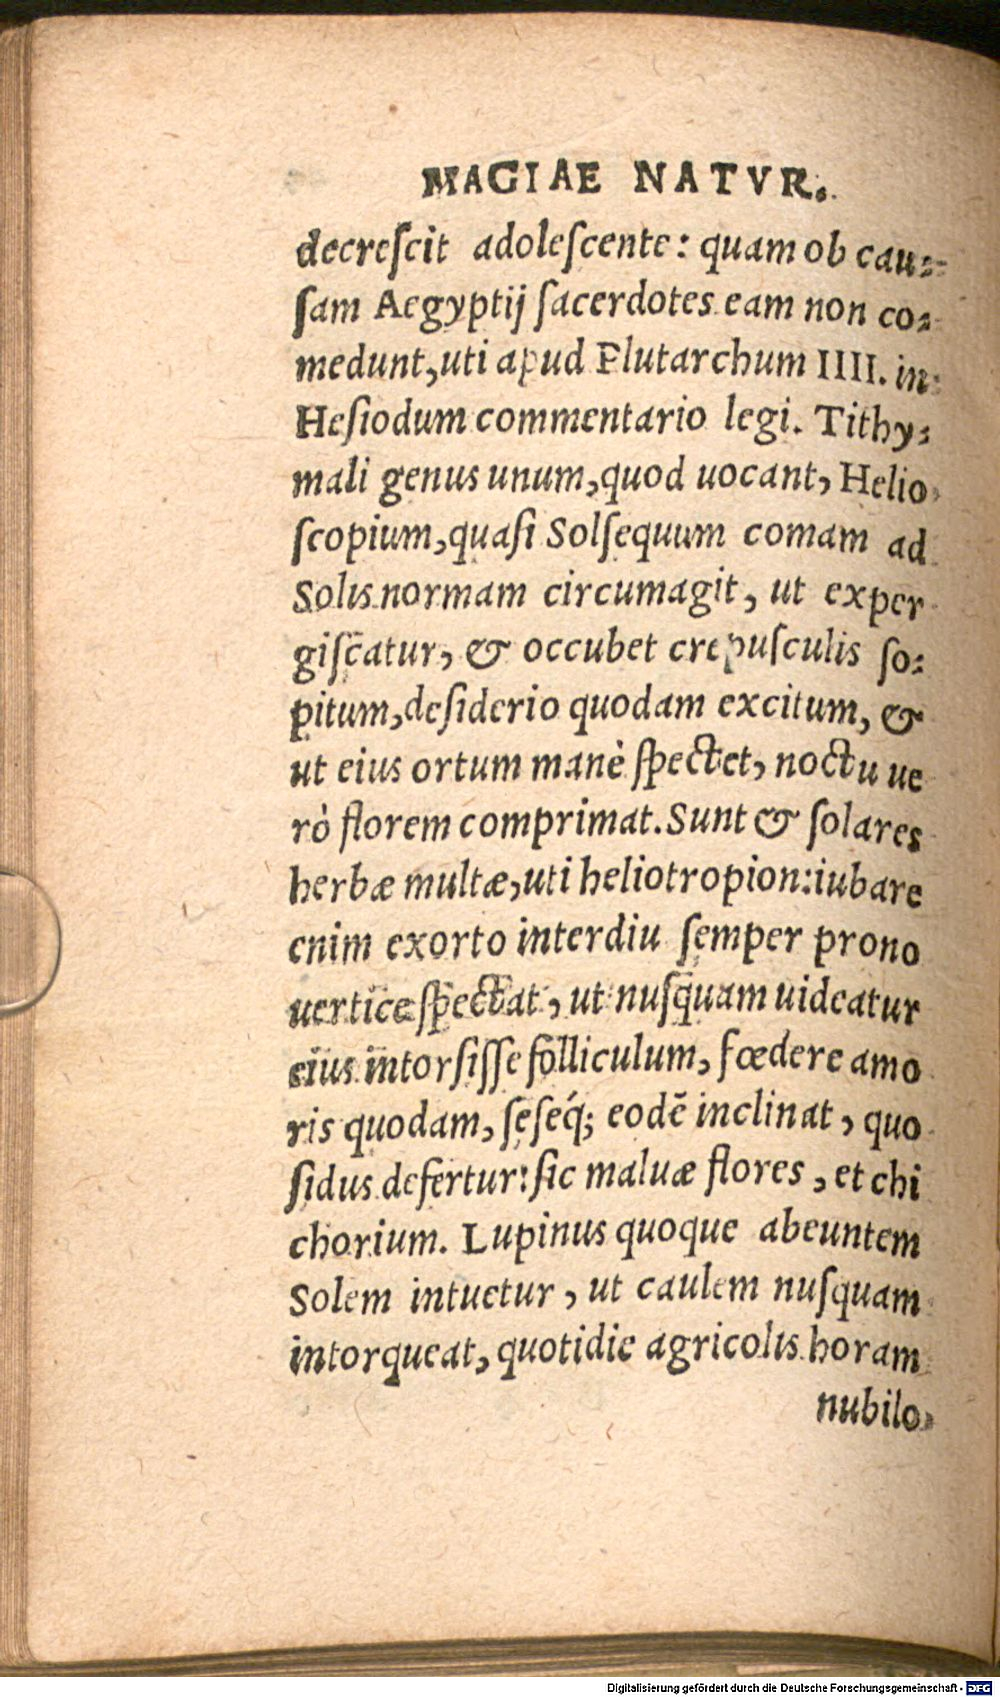 MAGIAE NATVR.
decreſcit adoleſcente: quam ob cau-
ſam Aegyptij ſacerdotes eam non co-
medunt, uti apud Plutarchum IIII. in
Heſiodum commentario legi. Tithy-
mali genus unum, quod uocant, Helio-
ſcopium, quaſi Solſequum comam ad
Solis normam circumagit, ut exper
giſcatur, & occubet crepuſculis ſo-
pitum, deſiderio quodam excitum, &
ut eius ortum manè ſpectet, noctu ue
rò florem comprimat. Sunt & ſolares
herbæ multæ, uti heliotropion: iubare
enim exorto interdiu ſemper prono
uertice ſpectat, ut nuſquam uideatur
eius intorſiſſe folliculum, fœdere amo
ris quodam, ſeſeq́; eodē inclinat, quo
ſidus defertur: ſic maluæ flores, et chi
chorium. Lupinus quoque abeuntem
Solem intuetur, ut caulem nuſquam
intorqueat, quotidie agricolis horam
nubilo-
Digitalisierung gefördert durch die Deutsche Forschungsgemeinschaft - DFG